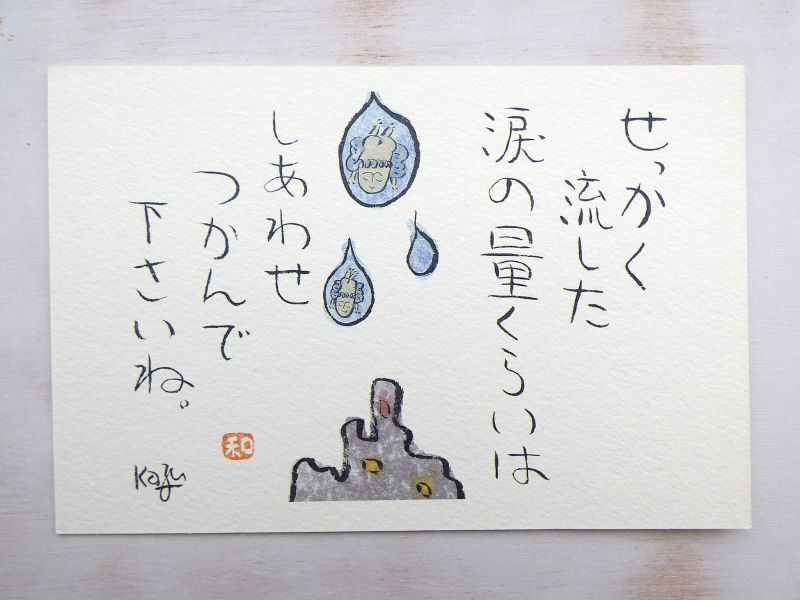 せっかく
流した
涙の量くらいは
しあわせ
つかんで
下さいね。
和
Kazu